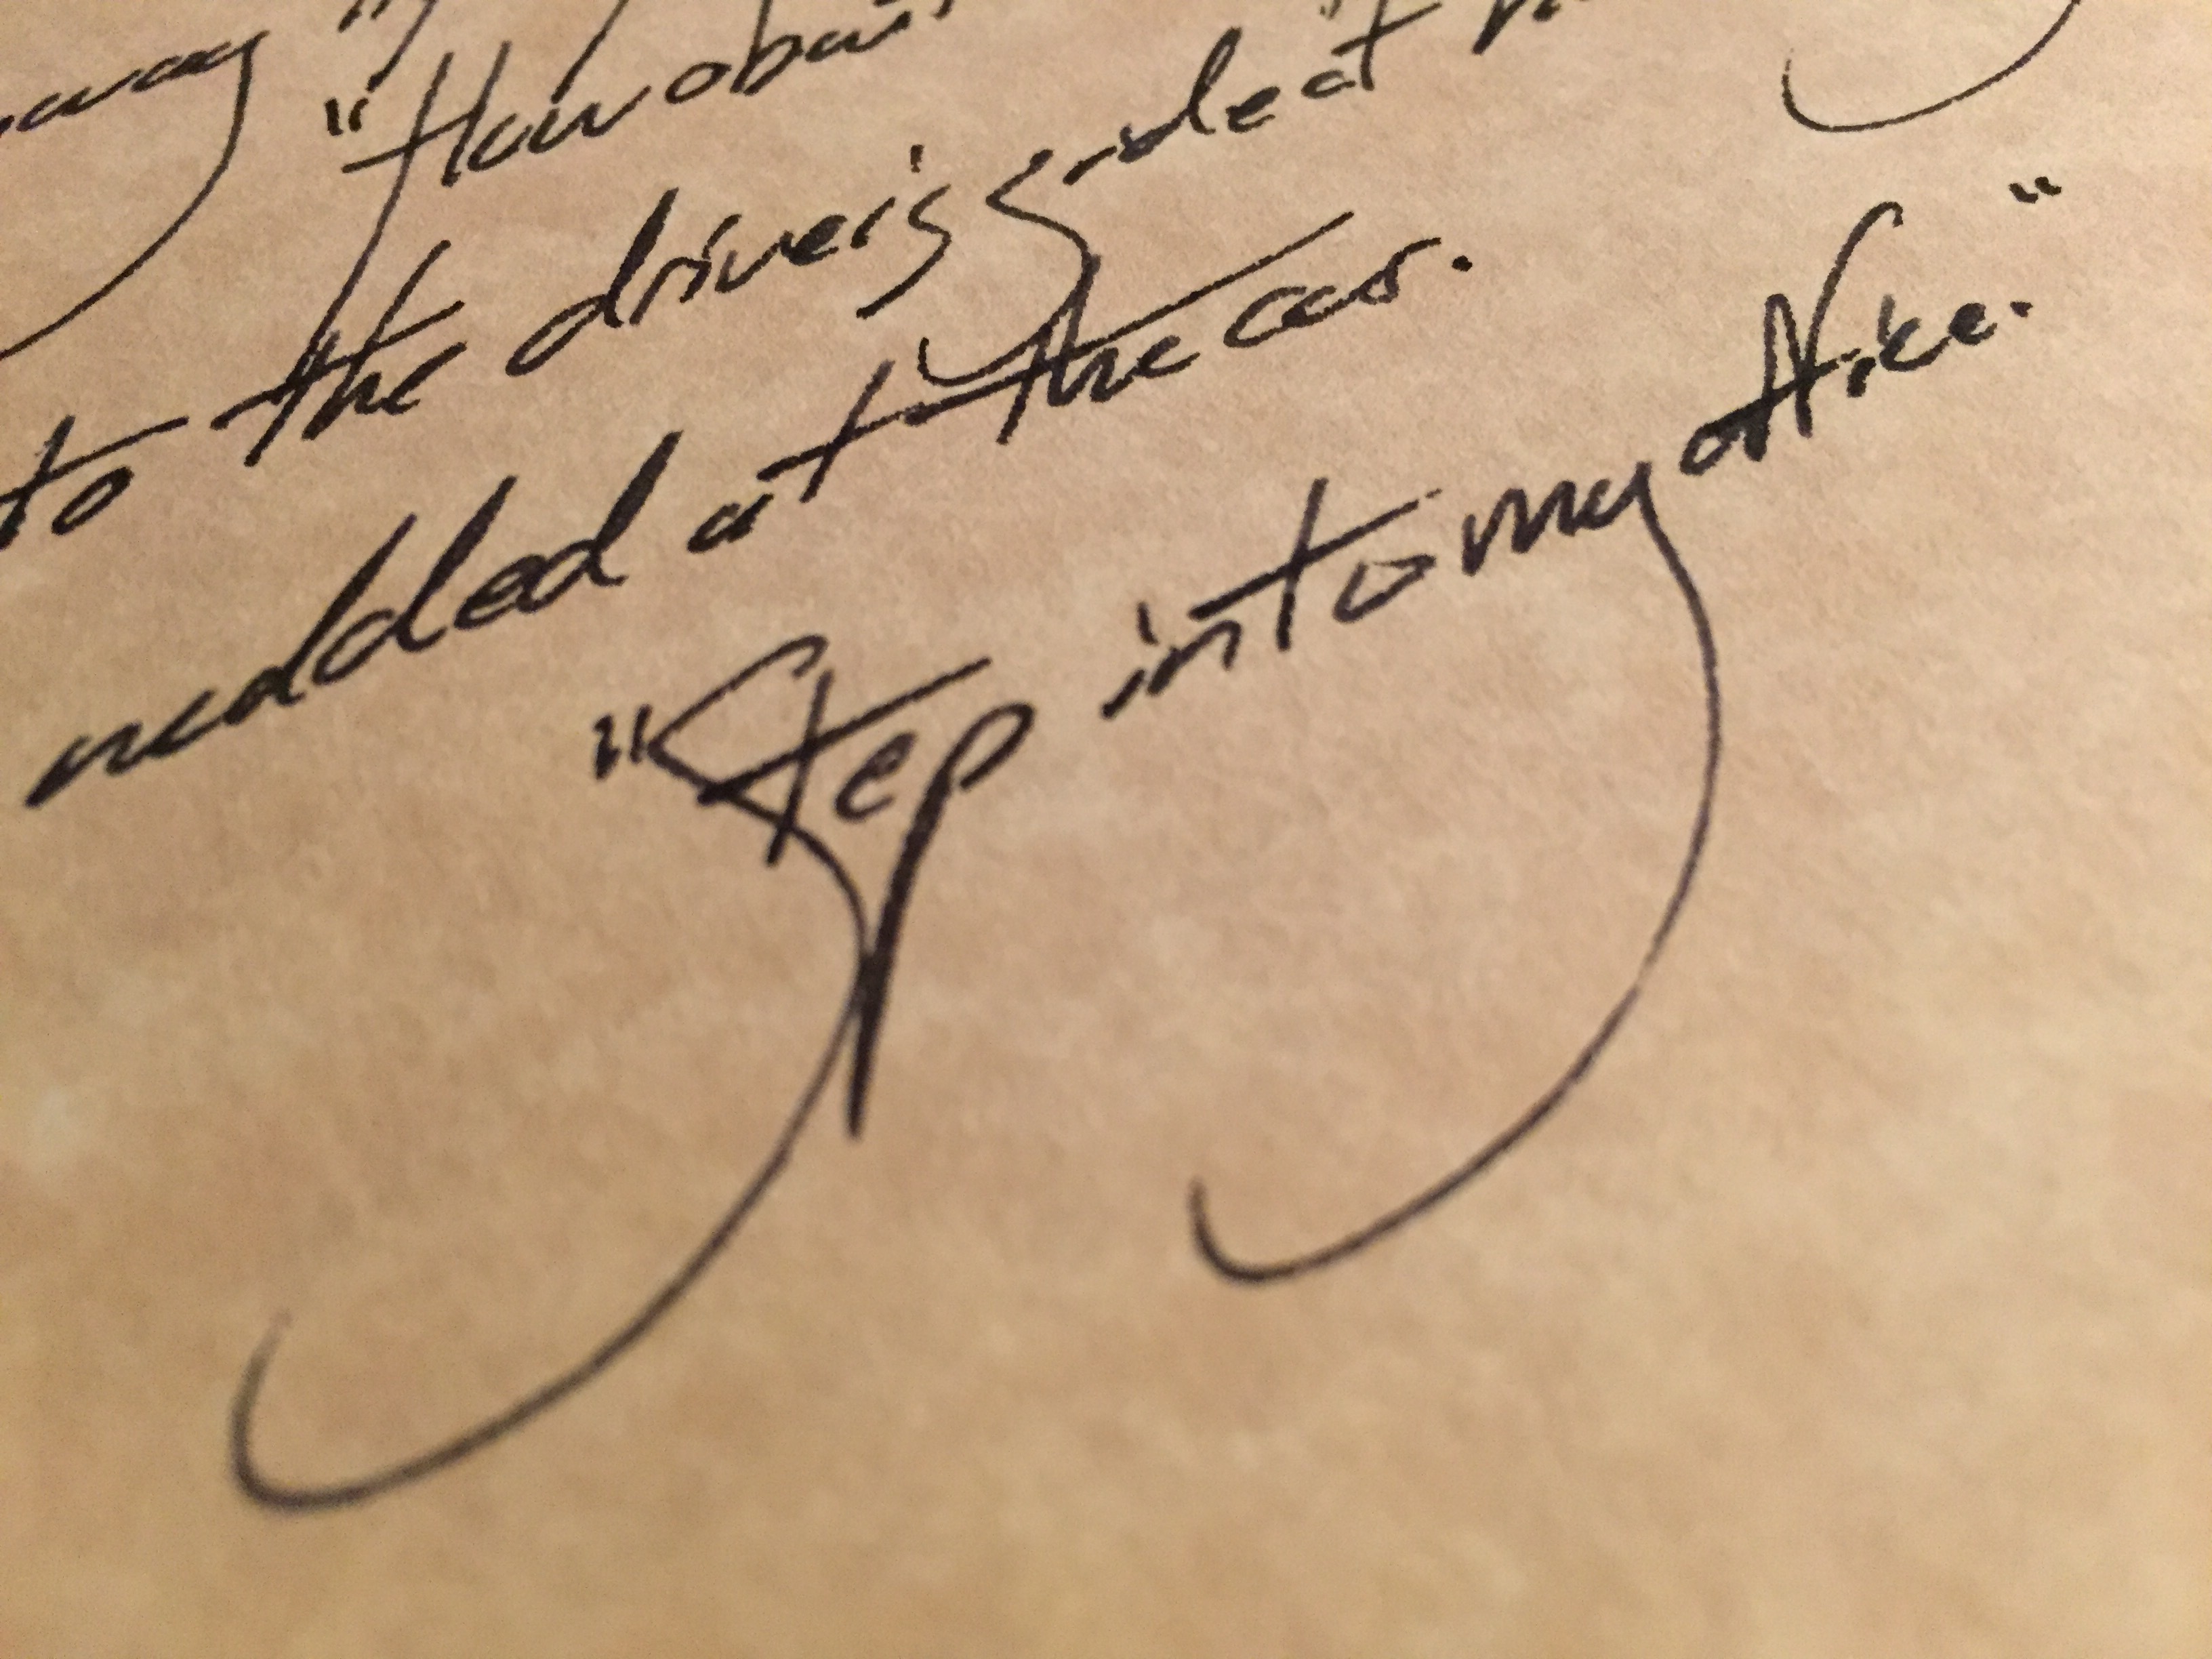 "How
to the driver's side
nodded at the car.
"Step into my office."